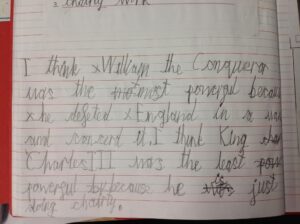 2. charity work
I think William the Conqueror
was the most powerful becau
he defeted England in a wa
and concerd it. I think King
Charles III was the least pow
powerful because he just
doing charity.